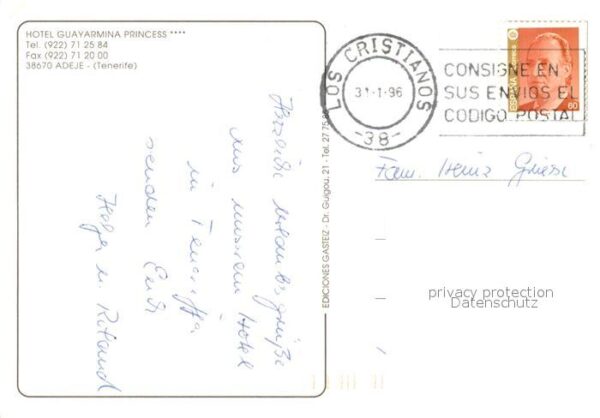 HOTEL GUAYARMINA PRINCESS ****
Tel. (922) 71 25 84
Fax (922) 71 20 00
38670 ADEJE - (Tenerife)
Herzliche Urlaubsgrüße
aus unserem Hotel
in Teneriffa
senden Euch
Helga u. Roland
EDICIONES GASTEIZ - Dr. Guigou, 21 - Tel. 27 75 8
LOS CRISTIANOS
31-1-96
-38-
CONSIGNE EN
SUS ENVIOS EL
CODIGO POSTAL
ESPAÑA
60
Fam. Heinz Griese
privacy protection
Datenschutz